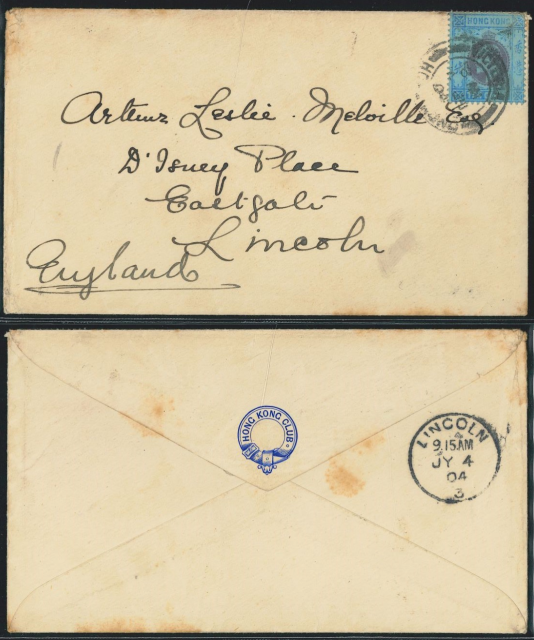 HONG KONG
Arthur Leslie Melville Esq.
D'Isney Place
Eastgate
Lincoln
England
HONG KONG CLUB
LINCOLN
9.15AM
JY 4
04
3